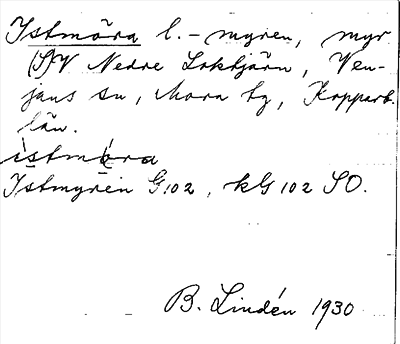 Istmöra l. -myren, myr
(S)V Nedre Loktjärn, Ven-
jans sn, Mora tg, Kopparb.
län.
ìstmöra
Istmyren G102, kG 102 SO.
B. Lindén 1930